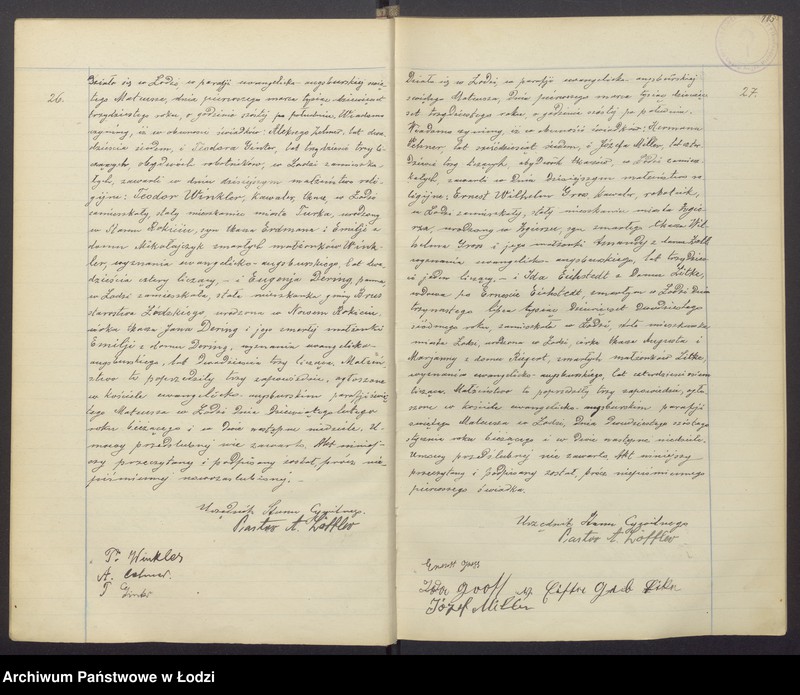 26.
Działo się w Łodzi, w parafji ewangelicko-augsburskiej świę-
tego Mateusza, dnia pierwszego marca tysiąc dziewięćset
trzydziestego roku, o godzinie szóstej po południu. Wiadomo
czynimy, iż w obecności świadków: lat dwa-
dzieścia siedem, i Teodora Ginter, lat trzydzieści trzy li-
czących, obydwóch robotników, w Łodzi zamieszka-
łych, zawarli w dniu dzisiejszym małżeństwo reli-
gijne: Teodor Winkler, kawaler, tkacz, w Łodzi
zamieszkały, stały mieszkaniec miasta Turka, urodzony
w Starem Rokiciu, syn tkacza Erdmana i Emilji z
domu Mikołajczyk zmarłych małżonków Wink-
ler, wyznania ewangelicko-augsburskiego, lat dwa-
dzieścia cztery liczący, — i Eugenja Dering, panna,
w Łodzi zamieszkała, stała mieszkanka gminy Brus
starostwa Łódzkiego, urodzona w Nowem Rokiciu,
córka tkacza Jana Dering i jego zmarłej małżonki
Emilji z domu Dering, wyznania ewangelicko-
augsburskiego, lat dwadzieścia trzy licząca. Małżeń-
stwo to poprzedziły trzy zapowiedzie, ogłoszone
w kościele ewangelicko-augsburskim parafji świę-
tego Mateusza w Łodzi dnia dziewiątego lutego
roku bieżącego i w dwie następne niedziele. U-
mowy przedślubnej nie zawarto. Akt niniej-
szy przeczytany i podpisany został, prócz nie-
piśmiennej nowozaślubionej. —
Urzędnik Stanu Cywilnego.
Pastor A. Löffler
T. Winkler
A.
T. Ginter
27.
Działo się w Łodzi, w parafji ewangelicko-augsburskiej
świętego Mateusza, dnia pierwszego marca tysiąc dziewięć-
set trzydziestego roku, o godzinie szóstej po południu.
Wiadomo czynimy, iż w obecności świadków: Hermana
lat sześćdziesiąt siedem, i Józefa Miller, lat
dzieści trzy liczących, obydwóch tkaczów, w Łodzi zamiesz-
kałych, zawarli w dniu dzisiejszym małżeństwo re-
ligijne: Ernest Wilhelm Gross, kawaler, robotnik,
w Łodzi zamieszkały, stały mieszkaniec miasta Zgie-
rza, urodzony w Zgierzu, syn zmarłego tkacza Wil-
helma Gross i jego małżonki Amandy z domu
wyznania ewangelicko-augsburskiego, lat trzydzieści
i jeden liczący — i Ida Eichstedt z domu Litke,
wdowa po Erneście Eichstedt, zmarłym w Łodzi dnia
trzynastego lipca tysiąc dziewięćset dwudziestego
siódmego roku, zamieszkała w Łodzi, stała mieszkanka
miasta Łodzi, urodzona w Łodzi, córka tkacza Augusta i
Marjanny z domu Rupert, zmarłych małżonków Litke,
wyznania ewangelicko-augsburskiego, lat czterdzieści osiem
licząca. Małżeństwo to poprzedziły trzy zapowiedzie, ogło-
szone w kościele ewangelicko-augsburskim parafji
świętego Mateusza w Łodzi, dnia dwudziestego szóstego
stycznia roku bieżącego i w dwie następne niedziele.
Umowy przedślubnej nie zawarto. Akt niniejszy
przeczytany i podpisany został, prócz niepiśmiennego
pierwszego świadka.
Urzędnik Stanu Cywilnego
Pastor A. Löffler
Ernest Gross
Ida
Józef Miller
Archiwum Państwowe w Łodzi